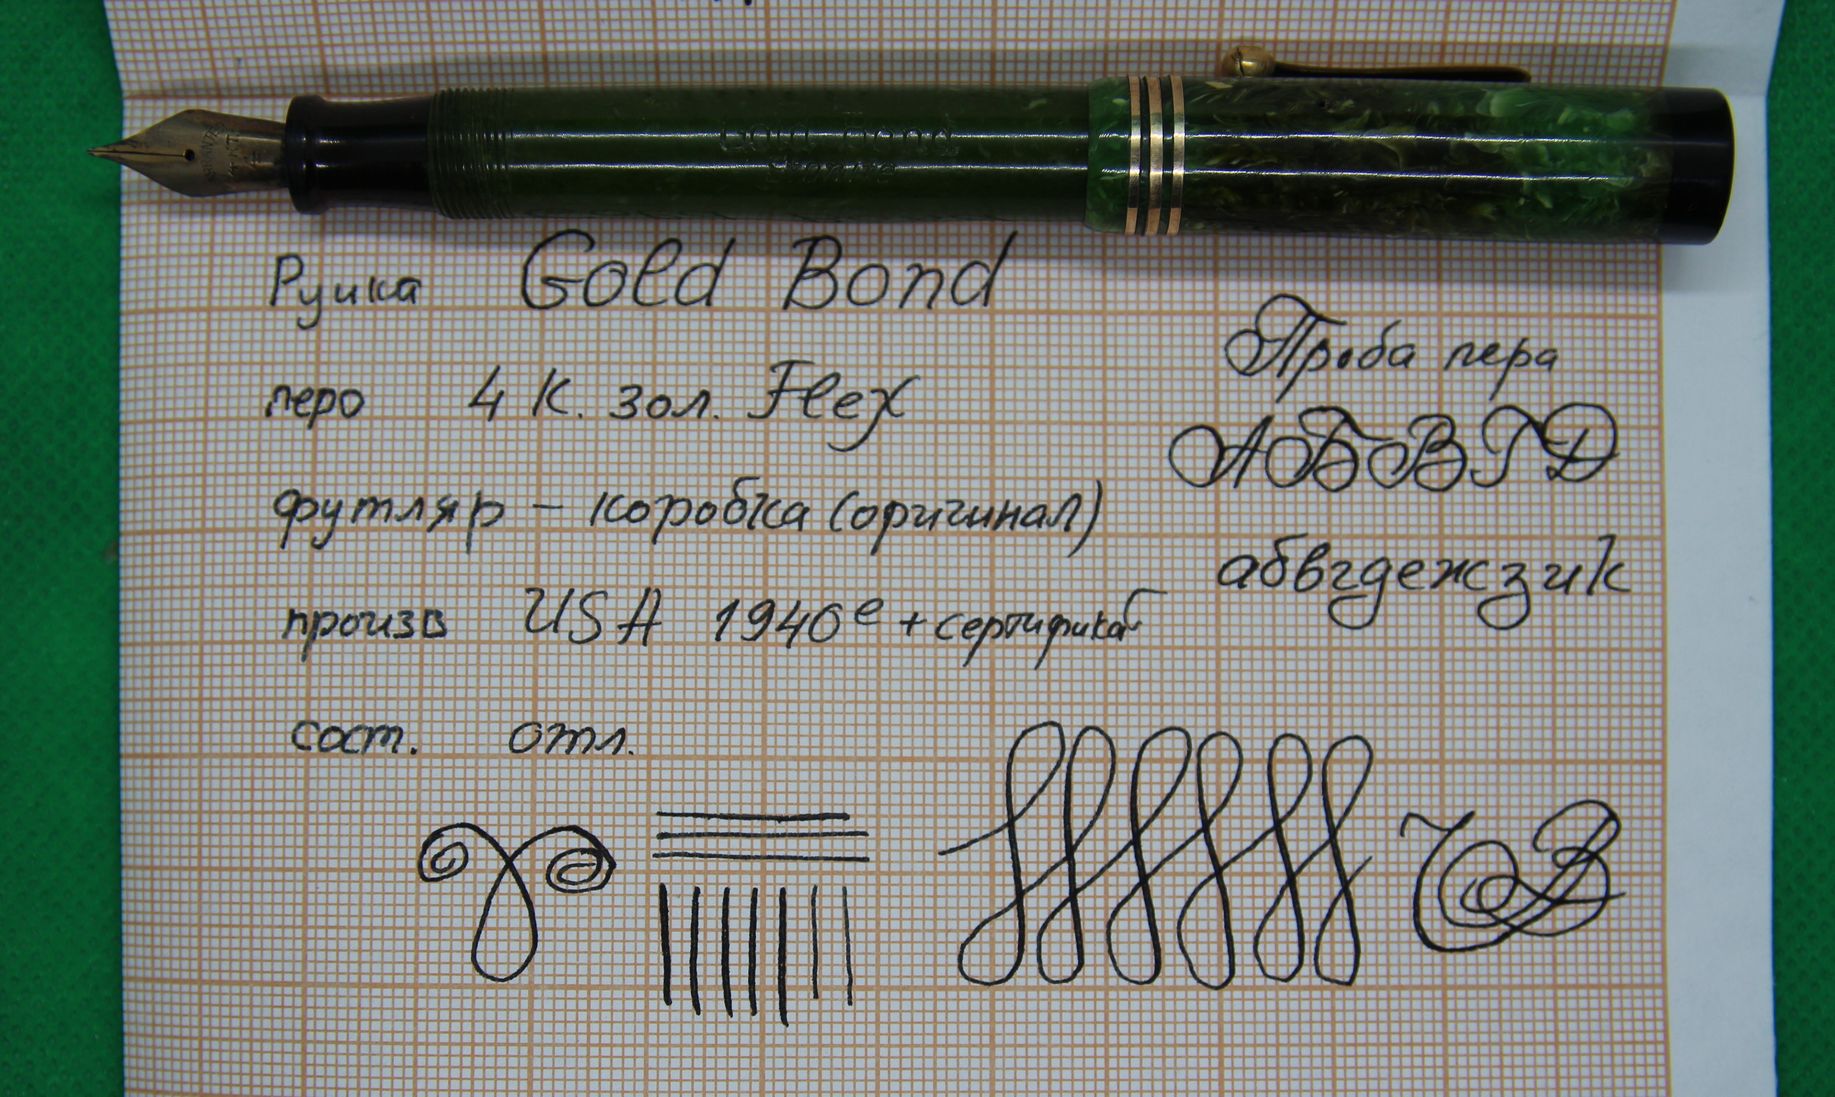 Gold Bond
Ручка Gold Bond
перо 4 К. зол. Flex
футляр - коробка (оригинал)
произв USA 1940е + сертификат
сост. отл.
Проба пера
АБВГД
абвгдежзик